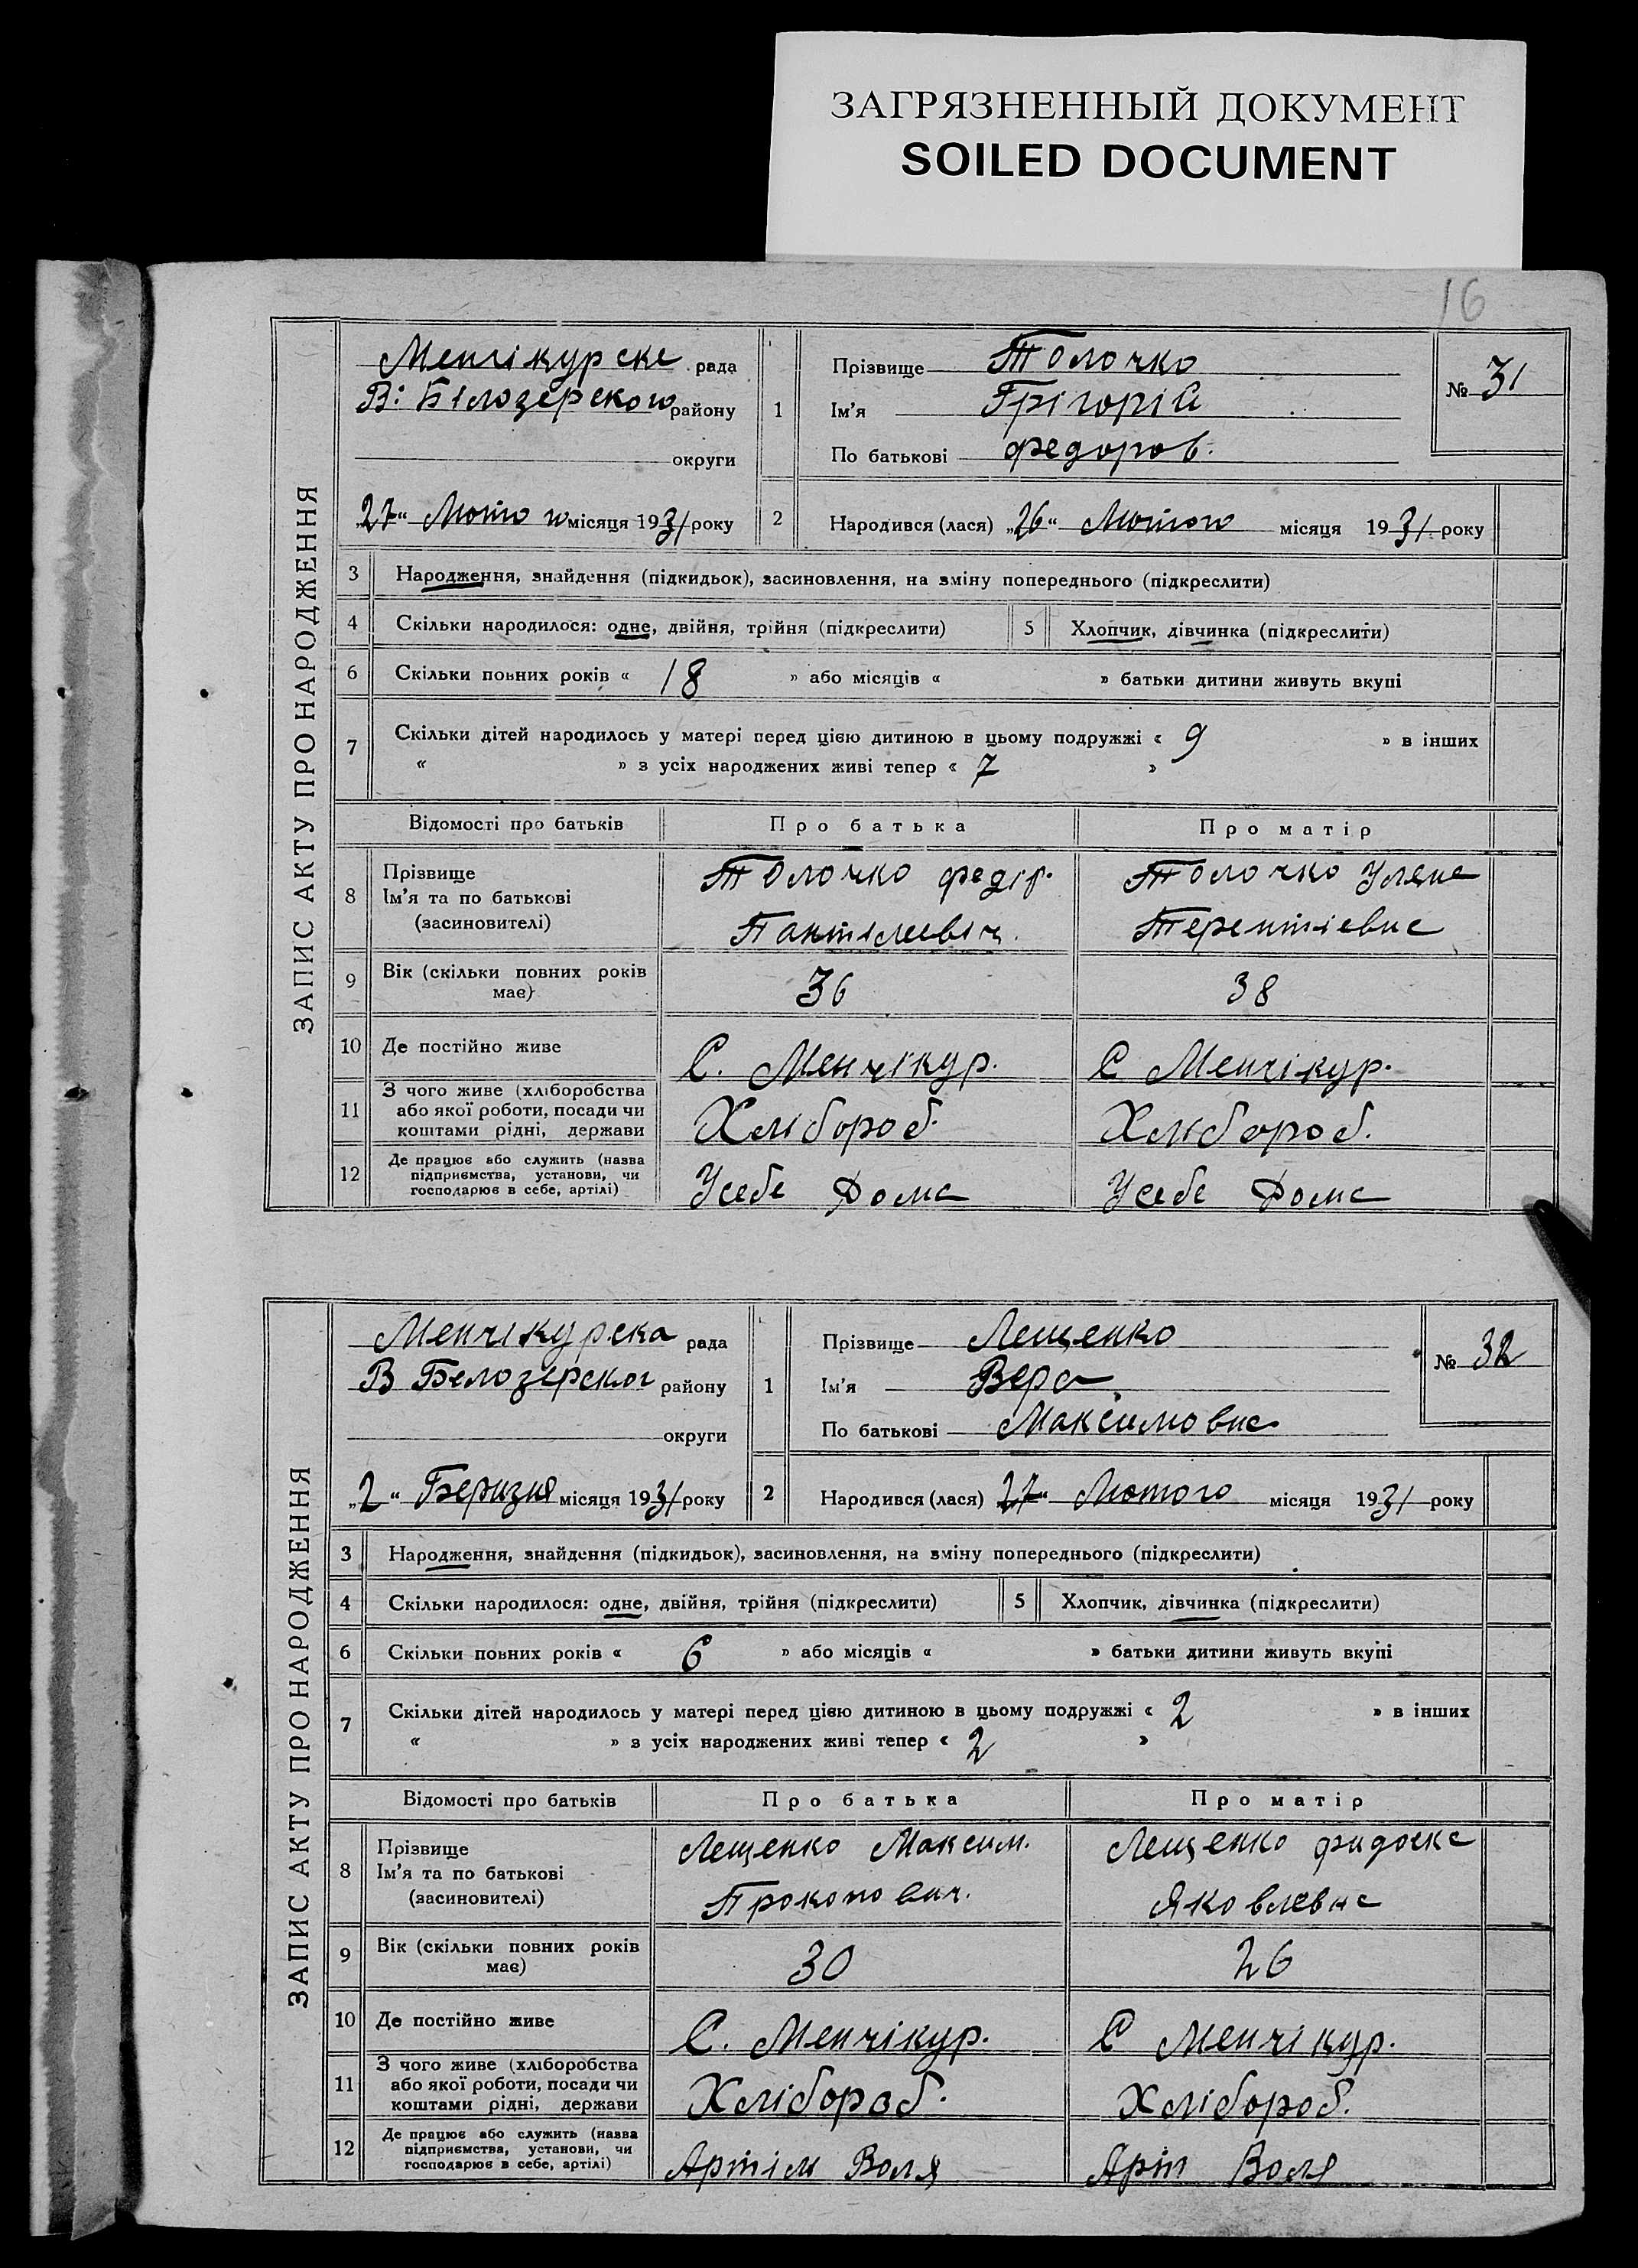 ЗАГРЯЗНЕННЫЙ ДОКУМЕНТ
SOILED DOCUMENT
16
ЗАПИС АКТУ ПРО НАРОДЖЕННЯ
Менчікурска рада
В: Білозерского району
округи
„27“ Лютого місяця 1931 року
1 Прізвище Толочко
Ім'я Грігорій
По батькові Федоров.
№ 31
2 Народився (лася) „26“ Лютого місяця 1931 року
3 Народження, знайдення (підкидьок), засиновлення, на зміну попереднього (підкреслити)
4 Скільки народилося: одне, двійня, трійня (підкреслити) 5 Хлопчик, дівчинка (підкреслити)
6 Скільки повних років « 18 » або місяців « » батьки дитини живуть вкупі
7 Скільки дітей народилось у матері перед цією дитиною в цьому подружжі « 9 » в інших
« » з усіх народжених живі тепер « 7 »
Відомості про батьків Про батька Про матір
8 Прізвище
Ім'я та по батькові
(засиновителі)
Толочко Федір.
Пантілеевіч.
Толочко Уляна
Терентіевна
9 Вік (скільки повних років
має)
36 38
10 Де постійно живе С. Менчікур. С Менчікур.
11 З чого живе (хліборобства
або якої роботи, посади чи
коштами рідні, держави
Хлібороб. Хлібороб.
12 Де працює або служить (назва
підприємства, установи, чи
господарює в себе, артілі)
Усебе Дома Усебе Дома
ЗАПИС АКТУ ПРО НАРОДЖЕННЯ
Менчікурска рада
В Белозерског району
округи
„2“ Беризня місяця 1931 року
1 Прізвище Лещенко
Ім'я Вера
По батькові Максимовна
№ 32
2 Народився (лася) „27“ Лютого місяця 1931 року
3 Народження, знайдення (підкидьок), засиновлення, на зміну попереднього (підкреслити)
4 Скільки народилося: одне, двійня, трійня (підкреслити) 5 Хлопчик, дівчинка (підкреслити)
6 Скільки повних років « 6 » або місяців « » батьки дитини живуть вкупі
7 Скільки дітей народилось у матері перед цією дитиною в цьому подружжі « 2 » в інших
« » з усіх народжених живі тепер « 2 »
Відомості про батьків Про батька Про матір
8 Прізвище
Ім'я та по батькові
(засиновителі)
Лещенко Максим.
Прокопович.
Лещенко Фидоска
Яковлевна
9 Вік (скільки повних років
має)
30 26
10 Де постійно живе С. Менчікур. С Менчікур.
11 З чого живе (хліборобства
або якої роботи, посади чи
коштами рідні, держави
Хлібороб. Хлібороб.
12 Де працює або служить (назва
підприємства, установи, чи
господарює в себе, артілі)
Артіль Воля Арт Воля